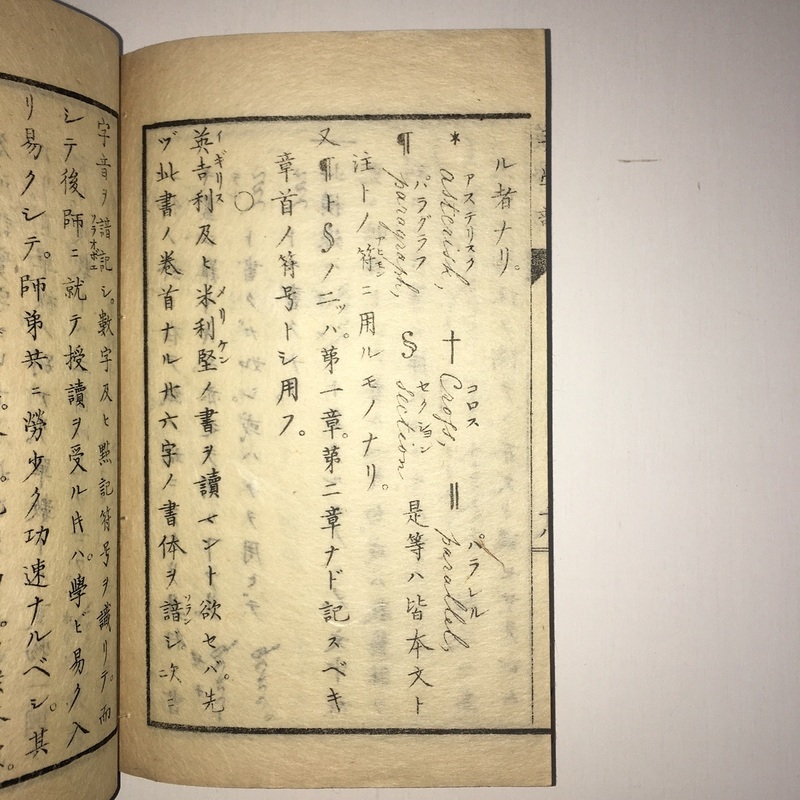 ル者ナリ。
* アステリスク asterisk, † コロス Cross, ‖ パラレル parallel,
¶ パラグラフ paragraph, § セクション section 是等ハ皆本文ト
注トノ符ニ用ルモノナリ。
又¶ト§ノ二ッハ。第一章。第二章ナド記スベキ
章首ノ符号トシ用フ。
○
イギリス メリケン
英吉利及ヒ米利堅ノ書ヲ讀マント欲セバ。先
ヅ此書ノ巻首ナル廿六字ノ書体ヲ諳ソランシ。次ニ
字音ヲ諳記シ。數字及ヒ點記符号ヲ識リテ。而
シテ後師ニ就テ授讀ヲ受ル片ハ。學ビ易ク入
リ易クシテ。師弟共ニ勞少ク功速ナルベシ。其